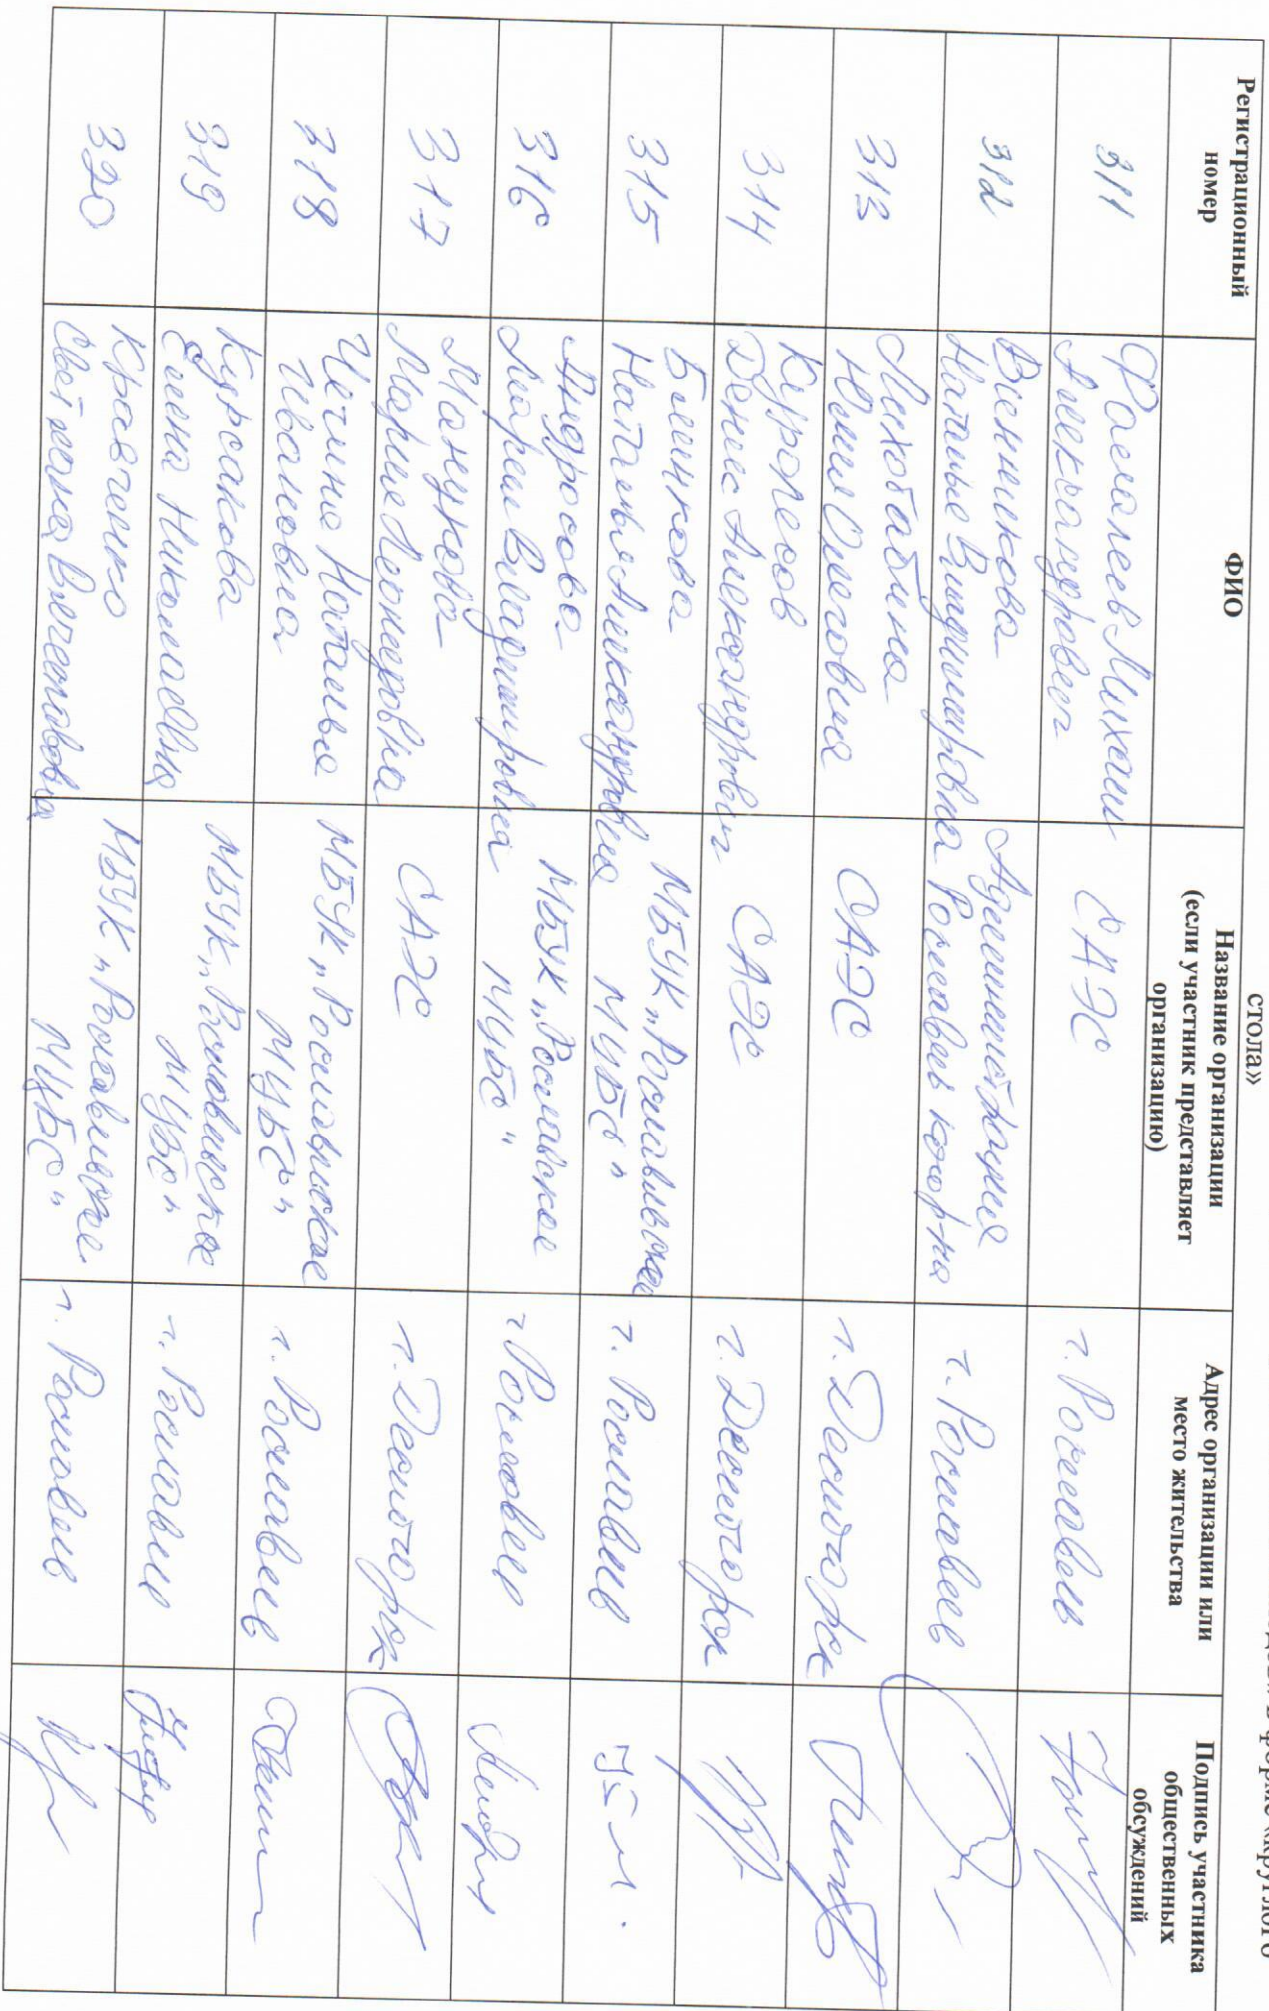 в форме «круглого
стола»
Регистрационный
номер
ФИО
Название организации
(если участник представляет
организацию)
Адрес организации или
место жительства
Подпись участника
общественных
обсуждений
311
Михаил
Александрович
САЭС
г. Рославль
312
Винникова
Наталья Владимировна
Администрация
г. Рославль
313
Юлия Олеговна
САЭС
г. Десногорск
314
Куролесов
Денис Александрович
САЭС
г. Десногорск
315
Блинкова
Наталья Александровна
МБУК „Рославльская
МЦБС"
г. Рославль
316
Андросова
Мария Владимировна
МБУК „Рославльская
МЦБС"
г. Рославль
317
Манукова
Мария Леонидовна
САЭС
г. Десногорск
318
Наталья
Ивановна
МБУК „Рославльская
МЦБС"
г. Рославль
319
Курсакова
Елена Николаевна
МБУК „Рославльская
МЦБС"
г. Рославль
320
Кравченко
Светлана Вячеславовна
МБУК „Рославльская
МЦБС"
г. Рославль